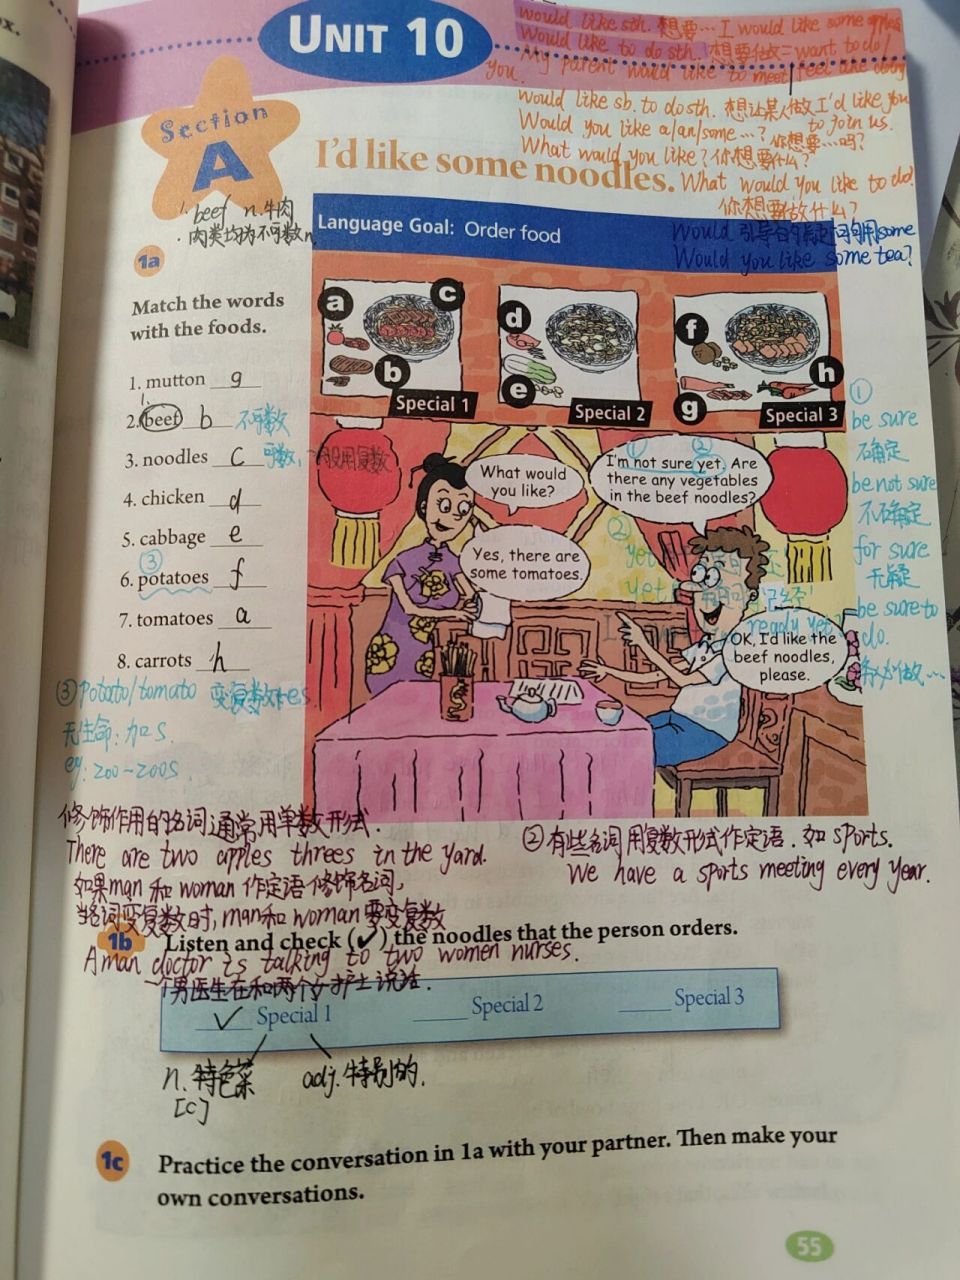 UNIT 10
would like sth. 想要… I would like some apples
Would like to do sth. 想要做=want to do/
My parent would like to meet feel like doing
you.
Would like sb. to do sth. 想让某人做 I'd like you
to join us.
Would you like a/an/some…? 你想要…吗?
What would you like? 你想要什么?
What would you like to do?
你想要做什么?
Section
A
I'd like some noodles.
1. beef n. 牛肉
肉类均为不可数n.
Language Goal: Order food
Would 引导的疑问句用some
Would you like some tea?
1a
Match the words
with the foods.
1. mutton g
2. beef b 不可数
3. noodles c 可数,一般用复数
4. chicken d
5. cabbage e
③
6. potatoes f
7. tomatoes a
8. carrots h
③ potato/tomato 变复数+es
无生命:加s.
eg: zoo-zoos.
a
c
b
Special 1
d
e
Special 2
f
h
g
Special 3
What would
you like?
① ②
I'm not sure yet. Are
there any vegetables
in the beef noodles?
Yes, there are
some tomatoes.
OK, I'd like the
beef noodles,
please.
②
yet
yet
ready yet?
①
be sure
确定
be not sure
不确定
for sure
无疑
be sure to
do.
务必做…
修饰作用的名词通常用单数形式.
There are two apples threes in the yard.
如果man 和 woman 作定语修饰名词,
当名词变复数时, man和 woman 要变复数
A man doctor is talking to two women nurses.
一个男医生在和两个女护士说话.
② 有些名词用复数形式作定语. 如 sports.
We have a sports meeting every year.
1b
Listen and check (✓) the noodles that the person orders.
✓ Special 1
Special 2
Special 3
n. 特色菜
[C]
adj. 特别的.
1c
Practice the conversation in 1a with your partner. Then make your
own conversations.
55